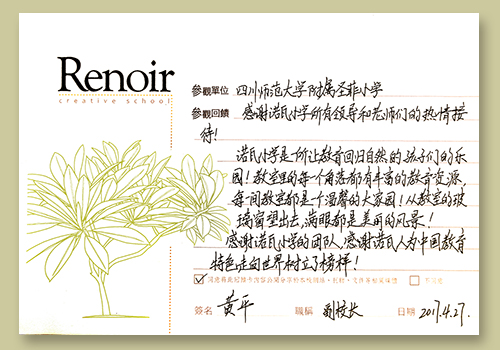 Renoir
creative school
參觀單位 四川师范大学附属圣菲小学
參觀回饋 感谢诺瓦小学所有领导和老师们的热情接
待!
诺瓦小学是所让教育回归自然的孩子们的乐
园!教室里的每个角落都有丰富的教育资源,
每间教室都是个温馨的大家园!从教室的玻
璃窗望出去,满眼都是美丽的风景!
感谢诺瓦小学的团队,感谢诺瓦人为中国教育
特色走向世界树立了榜样!
簽名 黄平 職稱 副校长 日期 2017.4.27.